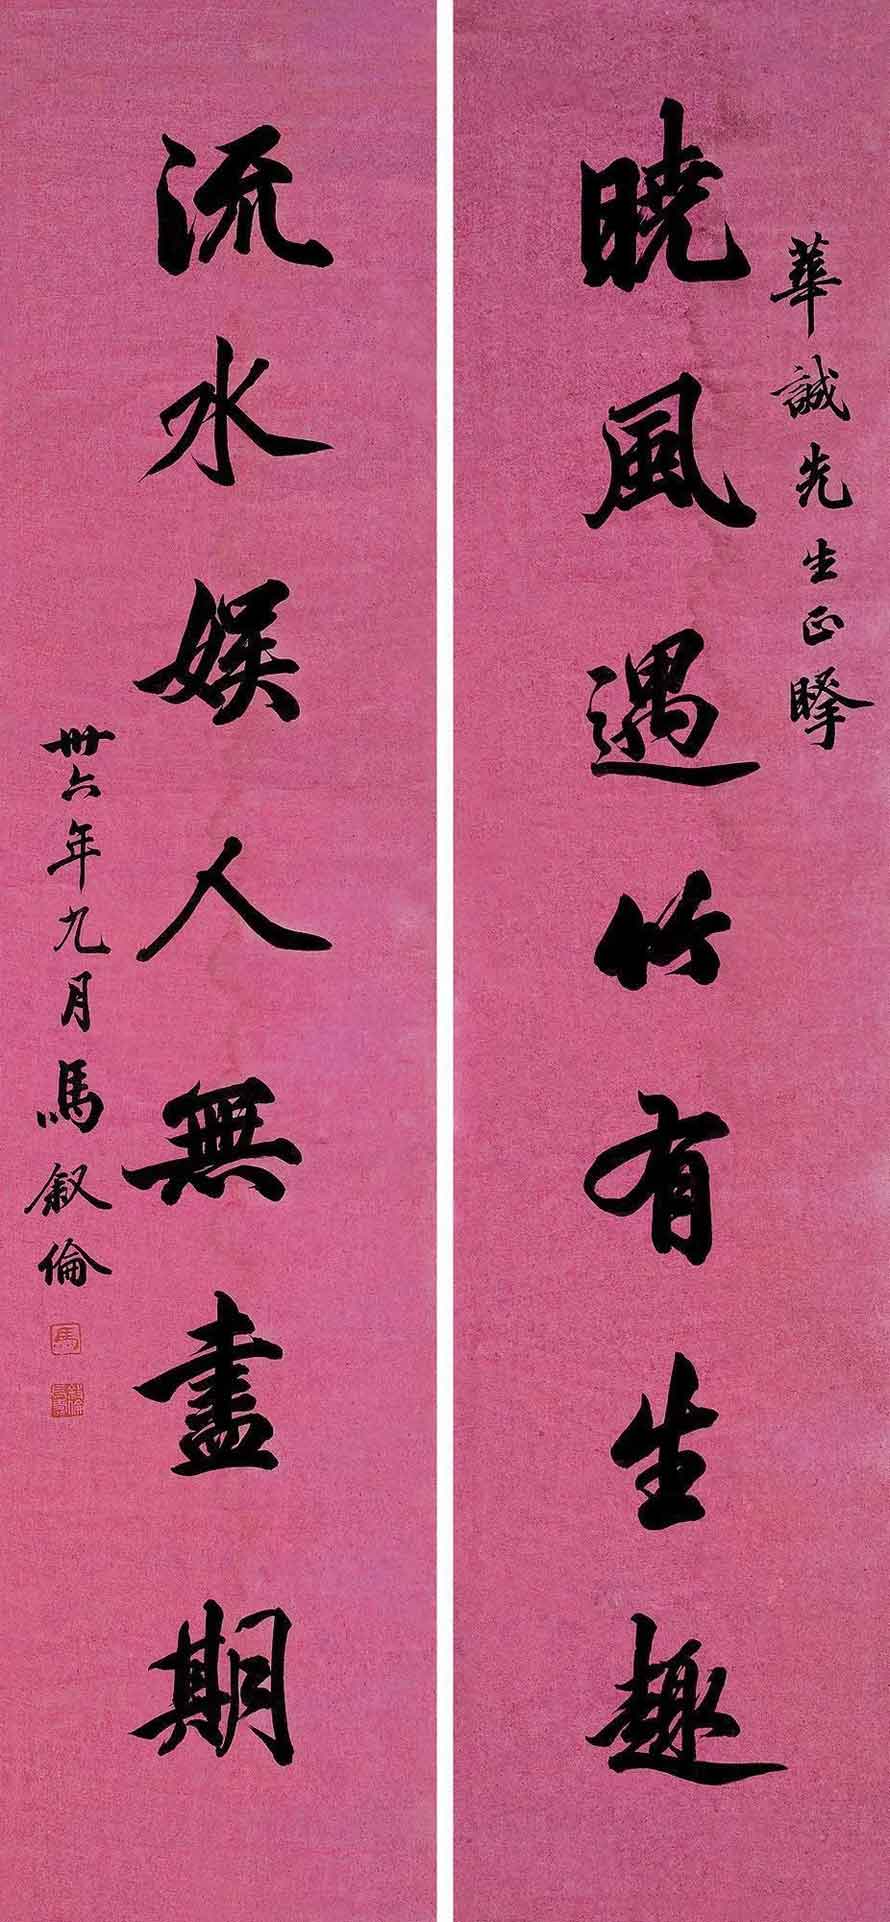 華誠先生正擘
曉風遇竹有生趣
流水娱人無盡期
卅六年九月馬叙倫
馬